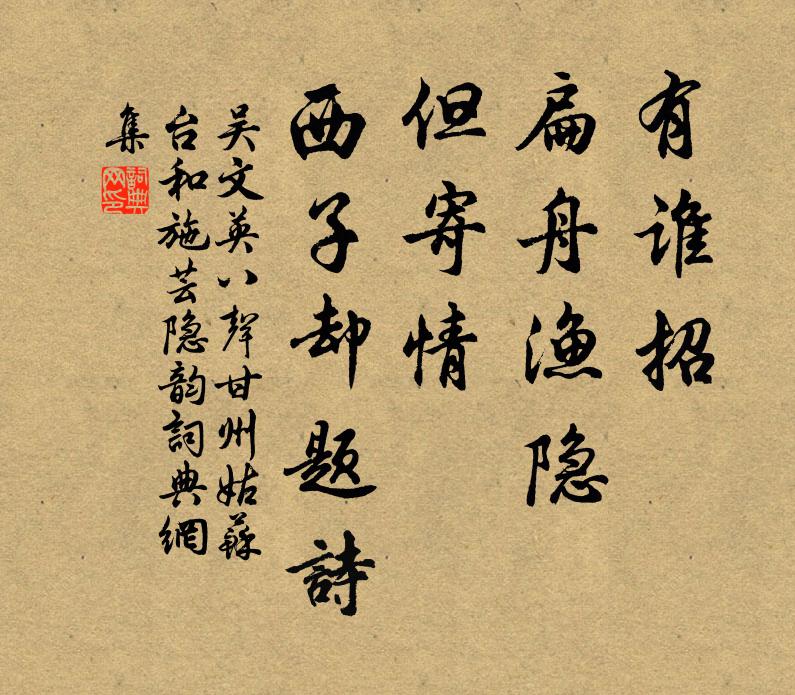 有谁招
扁舟渔隐
但寄情
西子却题詩
吴文英八聲甘州姑蘇
台和施芸隐韵詞典網
集
詞典
网印